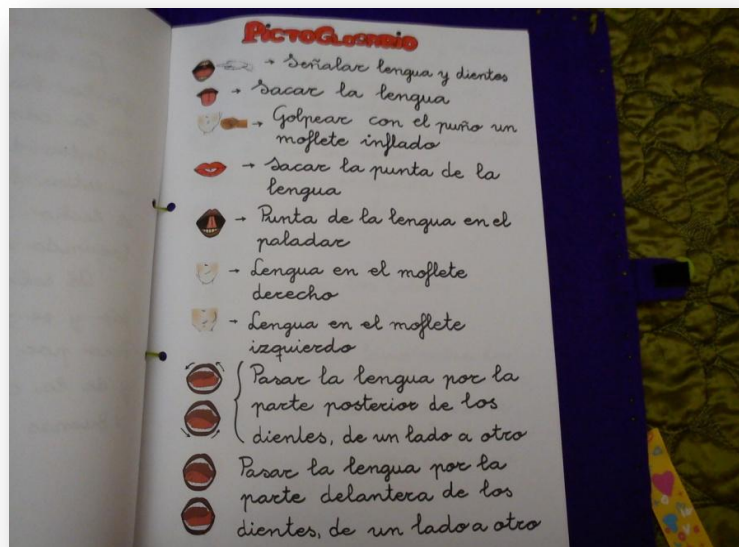 PICTOGLOSARIO
→ Señalar lengua y dientes
→ Sacar la lengua
→ Golpear con el puño un
moflete inflado
→ Sacar la punta de la
lengua
→ Punta de la lengua en el
paladar
→ Lengua en el moflete
derecho
→ Lengua en el moflete
izquierdo
Pasar la lengua por la
parte posterior de los
dientes, de un lado a otro
Pasar la lengua por la
parte delantera de los
dientes, de un lado a otro